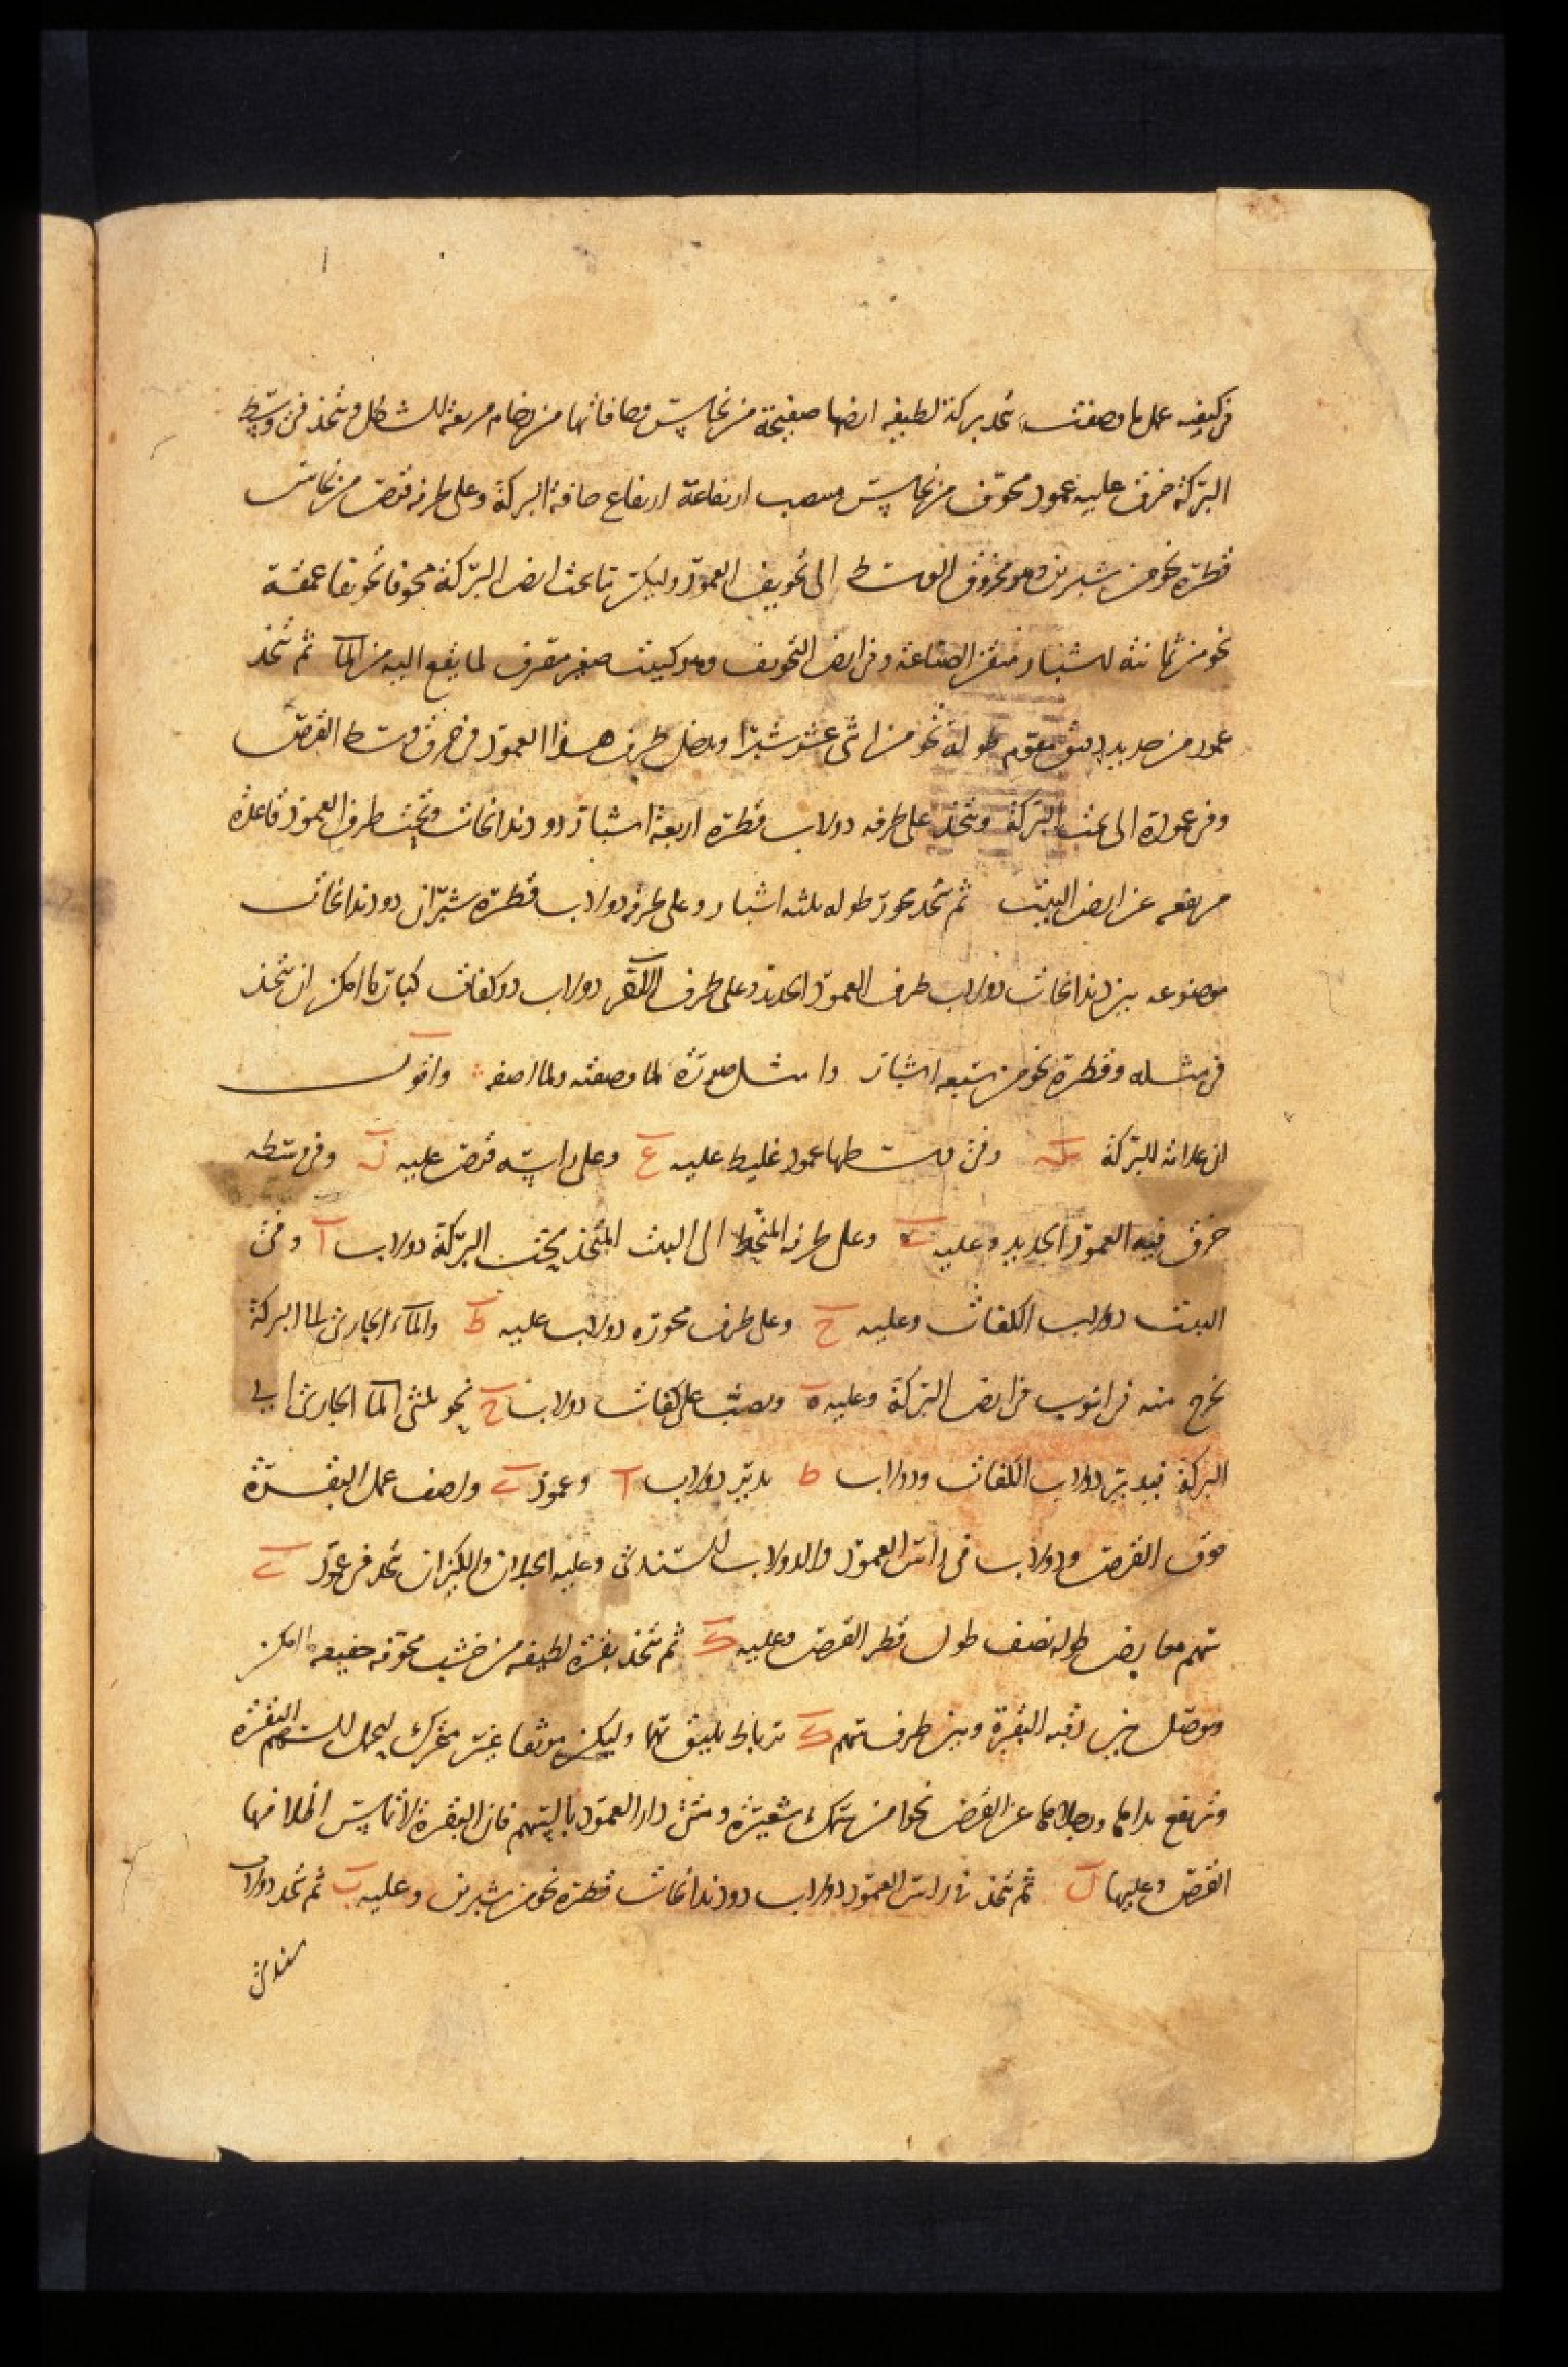 في كيفية عمل ما وصفت يتخذ بركة لطيفة ارضها صفيحة من نحاس وحافاتها من رخام مربعة الشكل ويتخذ في وسط
البركة خرق عليه عمود مجوف من نحاس منتصب ارتفاعه ارتفاع حافة البركة وعلى طرفه قرص من نحاس
قطره نحو من شبرين وهو مخروق الوسط الى تجويف العمود وليكن ما تحت ارض البركة مجوفا تجويفا عمقه
نحو من ثمانية اشبار متقن الصناعة وفي ارض التجويف وهو كبيت صغير مصرف لما يقع اليه من الماء ثم يتخذ
عمود من حديد دقيق مقوم طوله نحو من اثني عشر شبرا ويدخل طرف هذا العمود في خرق وسط القرص
وفي عموده الى تحت البركة ويتخذ على طرفه دولاب قطره اربعة اشبار ذو دندانجات وتحت طرف العمود قاعدة
مرتفعة عن ارض البيت ثم يتخذ محور طوله ثلثة اشبار وعلى طرفه دولاب قطره شبران ذو دندانجات
موضوعه بين دندانجات دولاب طرف العمود الحديد وعلى طرفه الاخر دولاب ذو كفات كبار ما امكن ان يتخذ
في مثله وقطره نحو من سبعة اشبار وامثل صورة لما وصفته ولما اصفه واقول
ان علامة البركة وفي وسطها عمود غليظ عليه ع وعلى راسه قرص عليه ف وفي وسطه
خرق فيه العمود الحديد وعليه وعلى طرفه المنحط الى البيت المتخذ تحت البركة دولاب ا وفي
البيت دولاب الكفات وعليه ح وعلى طرف محوره دولاب عليه ط والماء الجاري الى البركة
يخرج منه في انبوب في ارض البركة وعليه ه ويصب على كفات دولاب ح نحو ثلثي الماء الجاري الى
البركة فيدير دولاب الكفات ودولاب ط يدير دولاب ا وعمود ولصف عمل البقرة
فوق القرص ودولاب في راس العمود والدولاب السندي وعليه الحبلان والكيزان يتخذ في عمود
سهم معارض طوله نصف طول قطر القرص وعليه ك ثم يتخذ بقرة لطيفة من خشب مجوفة خفيفة ما امكن
ويوصل بين رقبة البقرة وبين طرف سهم ك برباط يليق بهما وليكن موثقا غير متحرك ليحمل السهم البقرة
وترتفع يداها ورجلاها عن القرص نحوا من سمك شعيرة ومتى دار العمود بالسهم فان البقرة لا تماس اظلافها
القرص وعليها ل ثم يتخذ في راس العمود دولاب ذو دندانجات قطره نحو من شبرين وعليه ب ثم يتخذ دولاب
سندي